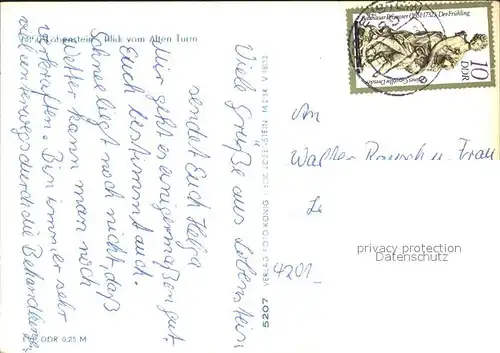 Lobenstein - Blick vom Alten Turm
Viele Grüße aus Lobenstein
sendet Euch Helga
Mir geht es einigermaßen gut,
Euch bestimmt auch.
Schnee liegt noch nicht, daß
Wetter kann man noch
verkraften. Bin immer sehr
viel unterwegs durch die Behandlung
DDR 0,25 M
5207 VERLAG FOTO KÖNIG LOBENSTEIN
Balthasar Permoser (1651-1732): Der Frühling
10
DDR
An
Walter Rausch u. Frau
4201
privacy protection
Datenschutz